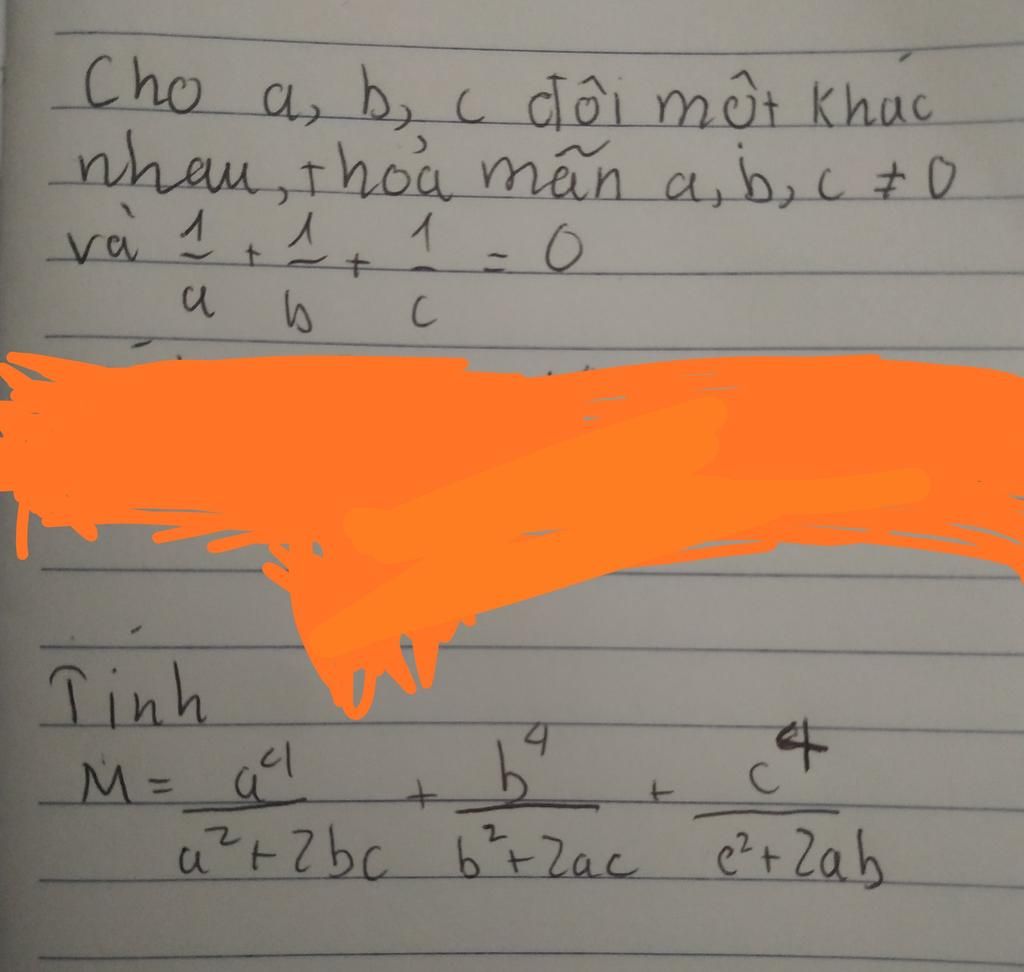 Cho a, b, c đôi một khác
nhau, thỏa mãn a, b, c ≠ 0
và 1/a + 1/b + 1/c = 0
Tính
M = a^4/(a²+2bc) + b^4/(b²+2ac) + c^4/(c²+2ab)